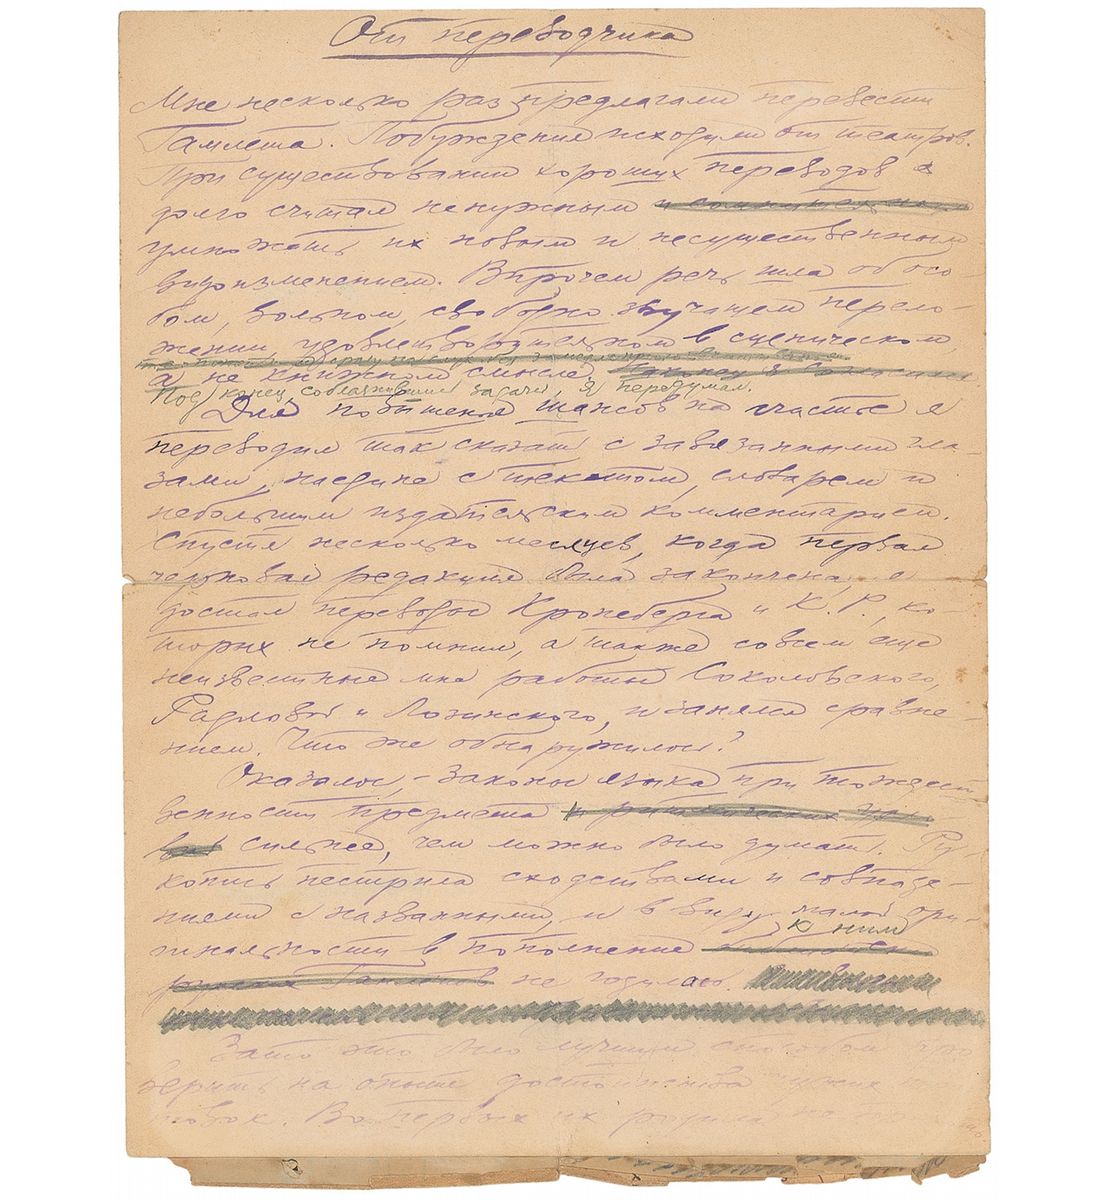 От переводчика
Мне несколько раз предлагали перевести
Гамлета. Побуждения исходили от театров.
При существовании хороших переводов я
долго считал ненужным
умножать их новым и несущественным
видоизменением. Впрочем речь шла об осо-
бом, вольном, свободно звучащем перело-
жении, удовлетворительном в сценическом
а не книжном смысле.
Под конец, соблазнившись задачей, я передумал.
Для повышенья шансов на счастье я
переводил так сказать с завязанными гла-
зами, наедине с текстом, словарем и
небольшим издательским комментарием.
Спустя несколько месяцев, когда первая
черновая редакция была закончена, я
достал переводы Кронеберга и К. Р., ко-
торых не помнил, а также совсем еще
неизвестные мне работы Соколовского,
Радловой и Лозинского, и занялся сравне-
нием. Что же обнаружилось?
Оказалось, – законы языка при тождест-
венности предмета
сильнее, чем можно было думать. Ру-
копись пестрила сходствами и совпаде-
ниями с названными, и в виду малой ори-
гинальности в пополнение к ним
не годилась.
Зато это было лучшим способом про
верить на опыте достоинства
Во первых их роднила